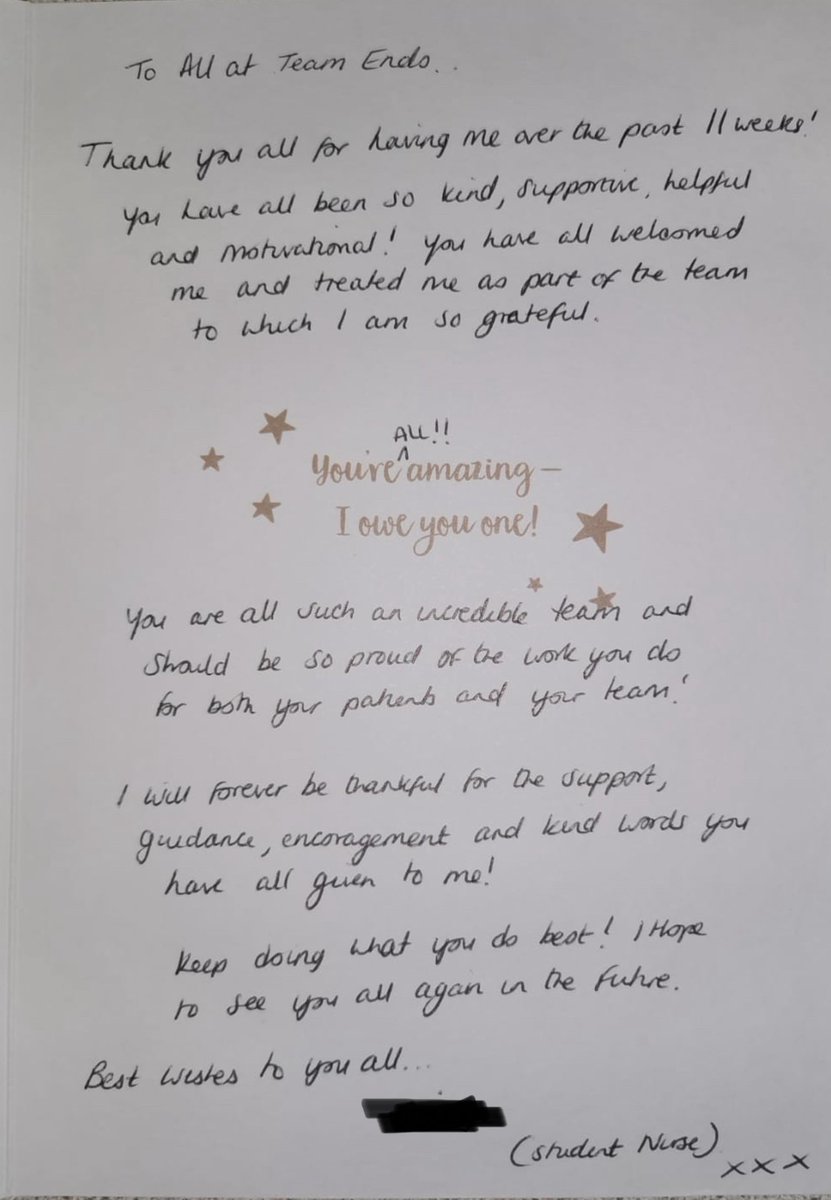 To All at Team Endo..
Thank you all for having me over the past 11 weeks!
You have all been so kind, supportive, helpful
and motivational! You have all welcomed
me and treated me as part of the team
to which I am so grateful.
ALL!!
You're amazing –
I owe you one!
You are all such an incredible team and
should be so proud of the work you do
for both your patients and your team!
I will forever be thankful for the support,
guidance, encoragement and kind words you
have all given to me!
Keep doing what you do best! I Hope
to see you all again in the future.
Best wishes to you all...
(Student Nurse)
xxx